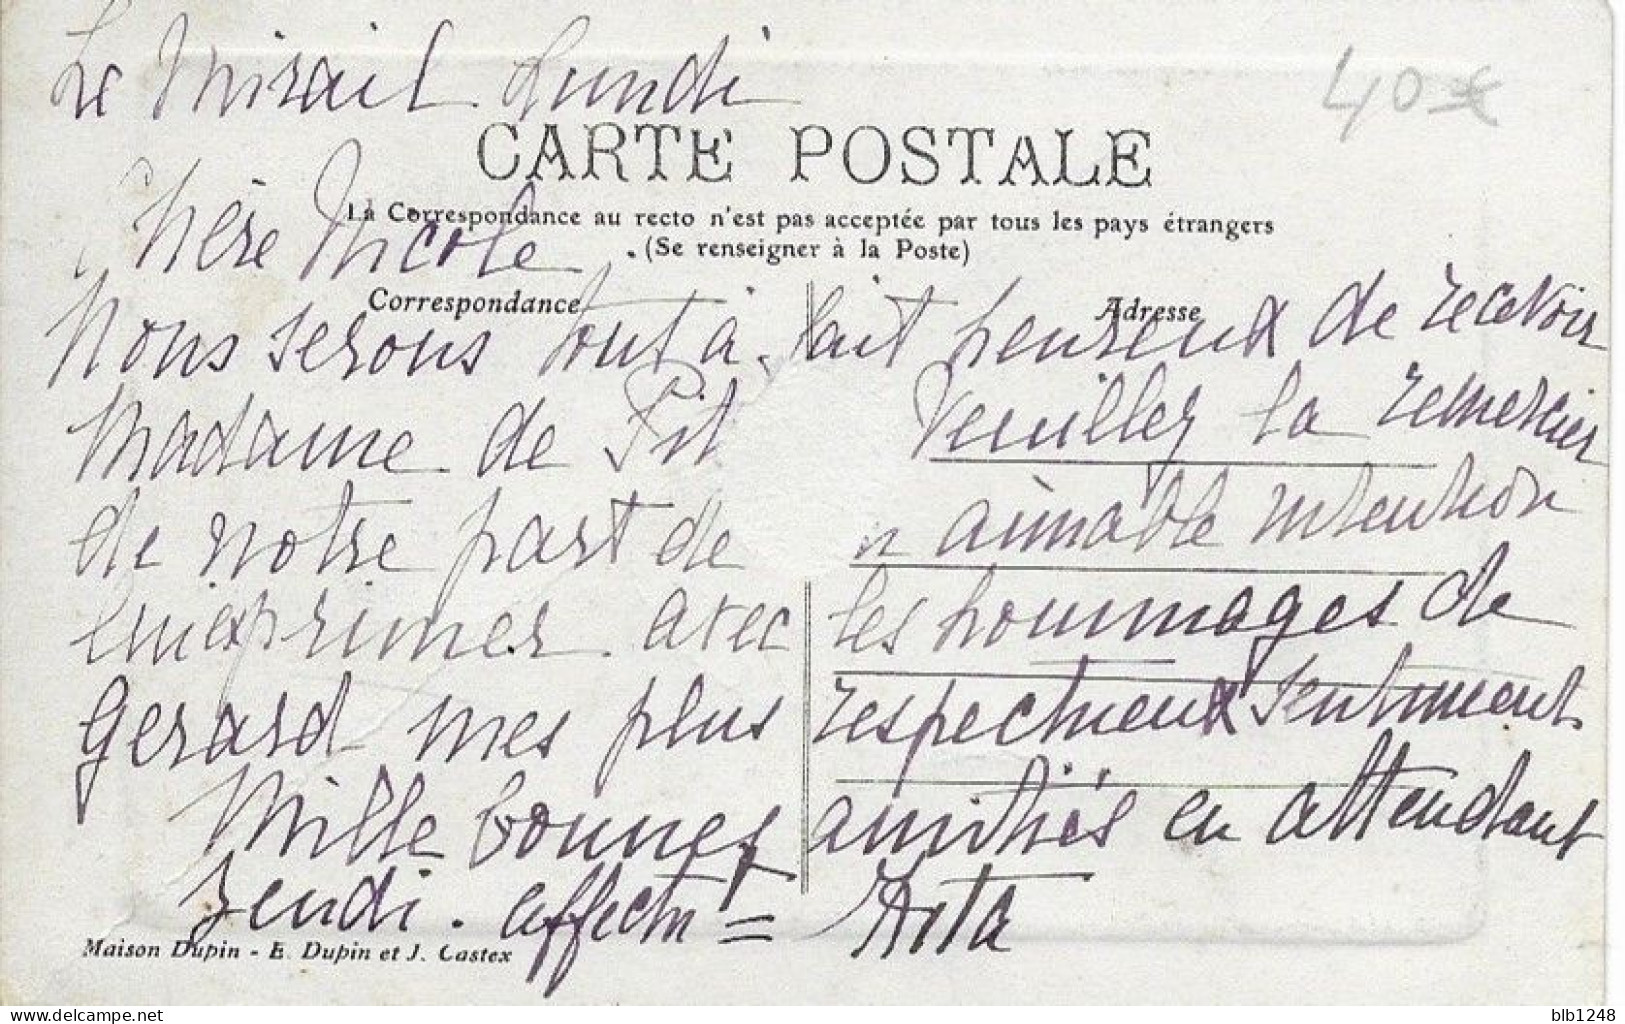 Le Mirail Lundi
40 €
CARTE POSTALE
La Correspondance au recto n'est pas acceptée par tous les pays étrangers
(Se renseigner à la Poste)
Chère Nicole
Correspondance
Adresse
Nous serons tout à fait heureux de recevoir
Madame de Pit Veuillez la remercier
de notre part de aimable intention
exprimer avec les hommages de
Gerard mes plus respectueux sentiments
Mille bonnes amitiés en attendant
Jeudi. affect =
Maison Dupin - E. Dupin et J. Castex
delcampe.net
blb1248